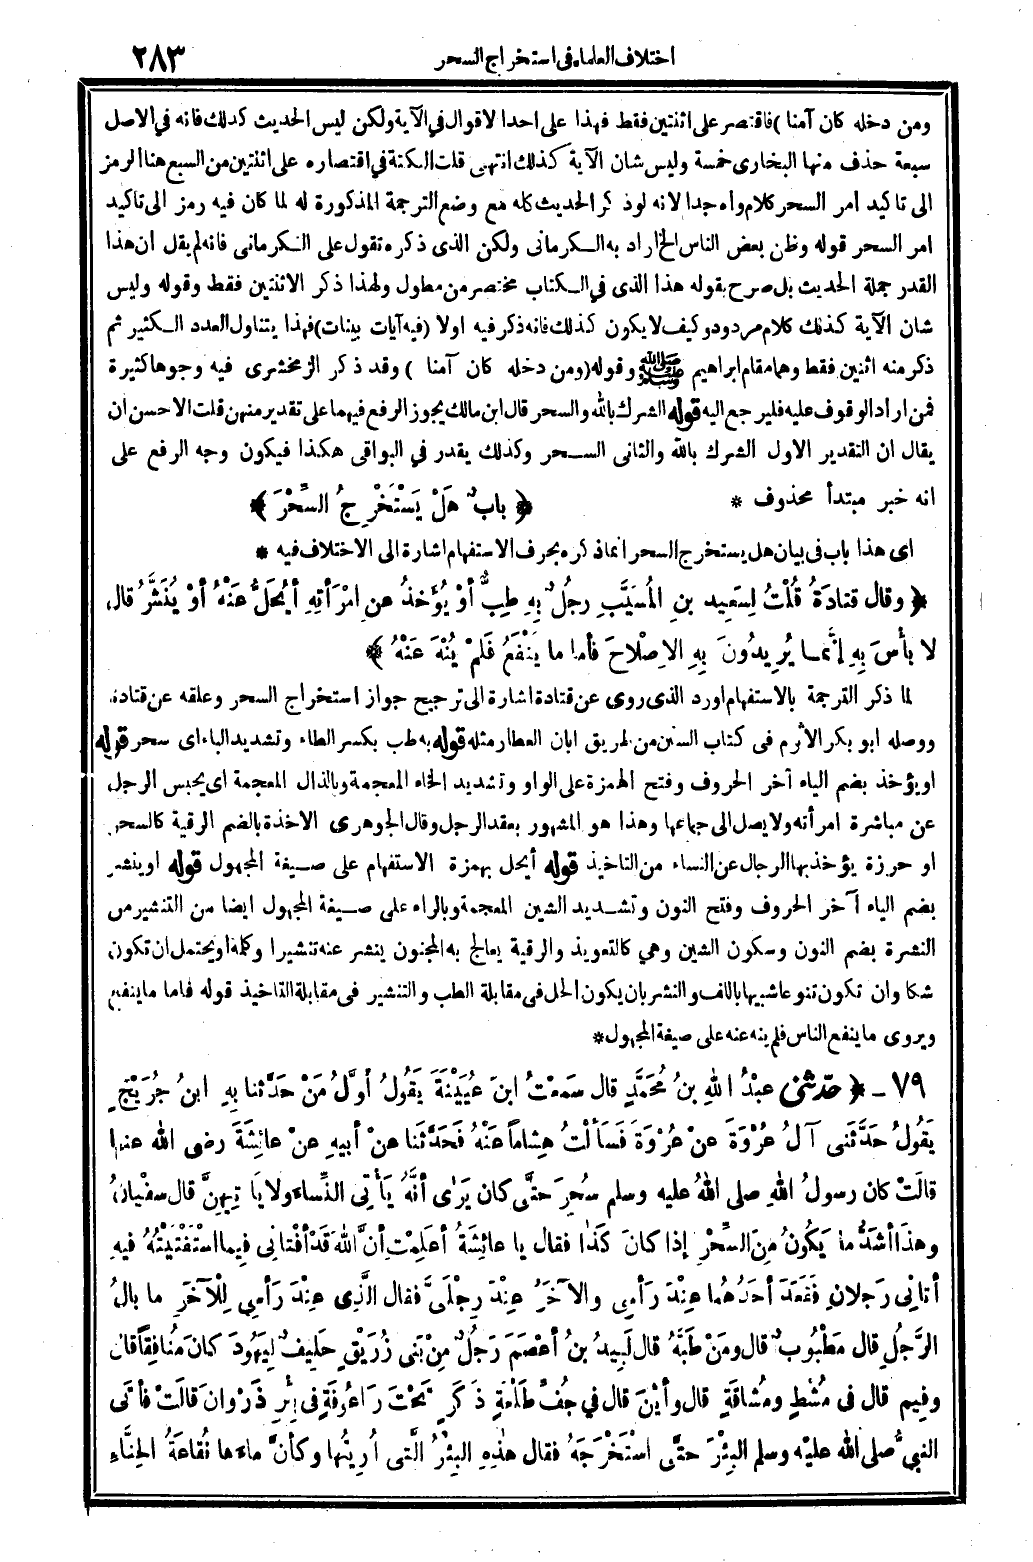 اختلاف العلماء في استخراج السحر
٢٨٣
ومن دخله كان آمنا ) فاقتصر على اثنتين فقط فهذا على احدا لاقوال في الآية ولكن ليس الحديث كذلك فانه في الاصل
سبعة حذف منها البخارى خمسة وليس شان الآية كذلك انتهى قلت النكتة في اقتصاره على اثنتين من السبع هنا الرمز
الى تاكيد امر السحر كلام واه جدا لانه لو ذكر الحديث كله مع وضع الترجمة المذكورة له لما كان فيه رمز الى تاكيد
امر السحر قوله وظن بعض الناس الخ اراد به الكرمانى ولكن الذى ذكره تقول على الكرمانى فانه لم يقل ان هذا
القدر جملة الحديث بل صرح بقوله هذا الذى في الكتاب مختصر من مطول ولهذا ذكر الاثنتين فقط وقوله وليس
شان الآية كذلك كلام مردود وكيف لا يكون كذلك فانه ذكر فيه اولا (فيه آيات بينات) فهذا يتناول العدد الكثير ثم
ذكر منه اثنين فقط وهما مقام ابراهيم ﷺ وقوله (ومن دخله كان آمنا ) وقد ذكر الزمخشرى فيه وجوها كثيرة
فمن اراد الوقوف عليه فليرجع اليه قوله الشرك بالله والسحر قال ابن مالك يجوز الرفع فيهما على تقدير منهن قلت الاحسن ان
يقال ان التقدير الاول الشرك بالله والثانى السحر وكذلك يقدر في البواقى هكذا فيكون وجه الرفع على
انه خبر مبتدأ محذوف *
﴿ بابٌ هَلْ يَسْتَخْرِجُ السِّحْرَ ﴾
اى هذا باب فى بيان هل يستخرج السحر انما ذكره بحرف الاستفهام اشارة الى الاختلاف فيه *
﴿ وقال قتادَةُ قُلْتُ لِسَعِيدِ بنِ المُسَيَّبِ رجلٌ بِهِ طِبٌّ أوْ يُؤَخَّذُ عنِ امْرَأتِهِ أيُحَلُّ عَنْهُ أوْ يُنَشَّرُ قال
لا بأسَ بِهِ إنَّما يُرِيدُونَ بِهِ الاِصْلاحَ فأما ما يَنْفَعُ فَلَمْ يُنْهَ عَنْهُ * ﴾
لما ذكر الترجمة بالاستفهام اورد الذى روى عن قتادة اشارة الى ترجيح جواز استخراج السحر وعلقه عن قتادة
ووصله ابو بكر الاثرم فى كتاب السنن من طريق ابان العطار مثله قوله به طب بكسر الطاء وتشديد الباء اى سحر قوله
او يؤخذ بضم الياء آخر الحروف وفتح الهمزة على الواو وتشديد الخاء المعجمة وبالذال المعجمة اى يحبس الرجل
عن مباشرة امرأته ولا يصل الى جماعها وهذا هو المشهور بعقد الرجل وقال الجوهرى الاخذة بالضم الرقية كالسحر
او حرزة يؤخذ بها الرجال عن النساء من التاخيذ قوله أيحل بهمزة الاستفهام على صيغة المجهول قوله او ينشر
بضم الياء آخر الحروف وفتح النون وتشديد الشين المعجمة وبالراء على صيغة المجهول ايضا من التنشير من
النشرة بضم النون وسكون الشين وهي كالتعويذ والرقية يعالج به المجنون ينشر عنه تنشيرا وكلمة او يحتمل ان تكون
شكا وان تكون تنوعا شبيها باللف والنشر بان يكون الحل فى مقابلة الطب والتنشير فى مقابلة التاخيذ قوله فاما ما ينفع
ويروى ما ينفع الناس فلم ينه عنه على صيغة المجهول*
٧٩ ـ ﴿ حدّثنى عبْدُ اللهِ بنُ مُحَمَّدٍ قال سَمِعْتُ ابنَ عُيَيْنَةَ يَقُولُ أوَّلُ مَنْ حَدَّثنا بِهِ ابنُ جُرَيْجٍ
يَقُولُ حَدَّثَنى آلُ عُرْوَةَ عنْ عُرْوَةَ فَسَألْتُ هِشاماً عَنْهُ فَحَدَّثَنا عنْ أبيهِ عنْ عائِشَةَ رضى الله عنها
قالَتْ كان رسولُ اللهِ صلى اللهُ عليه وسلم سُحِرَ حتَّى كان يَرَى أنَّهُ يَأْتِى النِّساءَ ولا يَأتِيهِنَّ قال سفْيانُ
وهذَا أشَدُّ ما يَكُونُ مِنَ السِّحْرِ إذا كانَ كَذَا فقال يا عائِشَةُ أعَلِمْتِ أنَّ اللهَ قَدْ أفْتانِى فِيما اسْتَفْتَيْتُهُ فِيهِ
أتانِى رَجلانِ فَقَعَدَ أحَدُهُما عِنْدَ رَأسِى والآخَرُ عِنْدَ رِجْلَىَّ فقال الَّذِى عِنْدَ رَأسِى لِلْآخَرِ ما بالُ
الرَّجُلِ قال مَطْبُوبٌ قال ومَنْ طَبَّهُ قال لَبِيدُ بنُ أعْصَمَ رَجلٌ مِنْ بَنى زُرَيْقٍ حَلِيفٌ لِيَهُودَ كان مُنافِقاً قال
وفِيمَ قال فى مُشْطٍ ومُشاقَةٍ قال وأيْنَ قال فى جُفِّ طَلْعَةٍ ذَكَرٍ تَحْتَ رَاعُوفَةٍ فى بِئْرِ ذَرْوانَ قالَتْ فأتَى
النبىُّ صلى الله عليْه وسلم البِئْرَ حتَّى اسْتَخْرَجَهُ فقال هٰذِهِ البِئْرُ الَّتى اُرِيتُها وكأنَّ ماءَها نُقاعَةُ الحِنَّاءِ